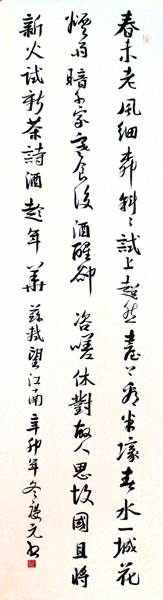 春未老風細柳斜〻試上超然臺上看半壕春水一城花
煙雨暗千家寒食後酒醒卻咨嗟休對故人思故國且將
新火試新茶詩酒趁年華 蘇軾望江南 辛卯年冬慶元書